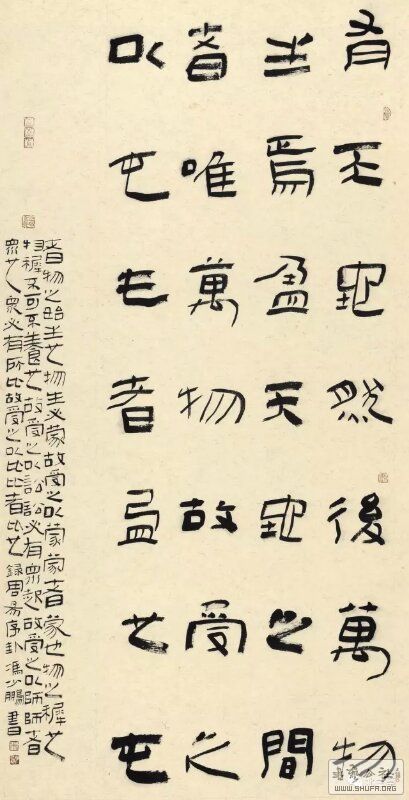 有天地然後萬物
生焉盈天地之間
者唯萬物故受之
以屯屯者盈也屯
者物之始生也物生必蒙故受之以蒙蒙者蒙也物之穉也
物穉不可不養也故受之以訟訟必有眾起故受之以師師者
眾也眾必有所比故受之以比比者比也錄周易序卦馮少鵬書
WWW.SHUFA.ORG